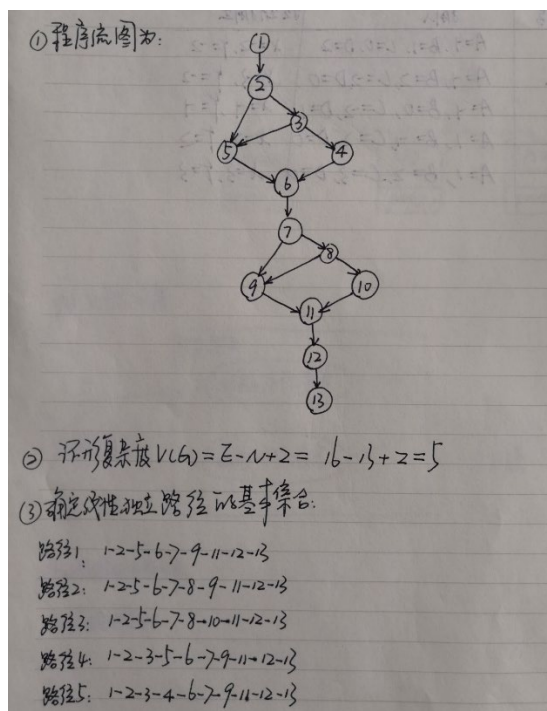 ①程序流图为:
1
2
3
5
4
6
7
8
9
10
11
12
13
② 环形复杂度V(G)=E-N+2= 16-13+2=5
(3)确定线性独立路径的基本集合:
路径1: 1-2-5-6-7-9-11-12-13
路径2: 1-2-5-6-7-8-9-11-12-13
路径3: 1-2-5-6-7-8-10-11-12-13
路径4: 1-2-3-5-6-7-9-11-12-13
路径5: 1-2-3-4-6-7-9-11-12-13